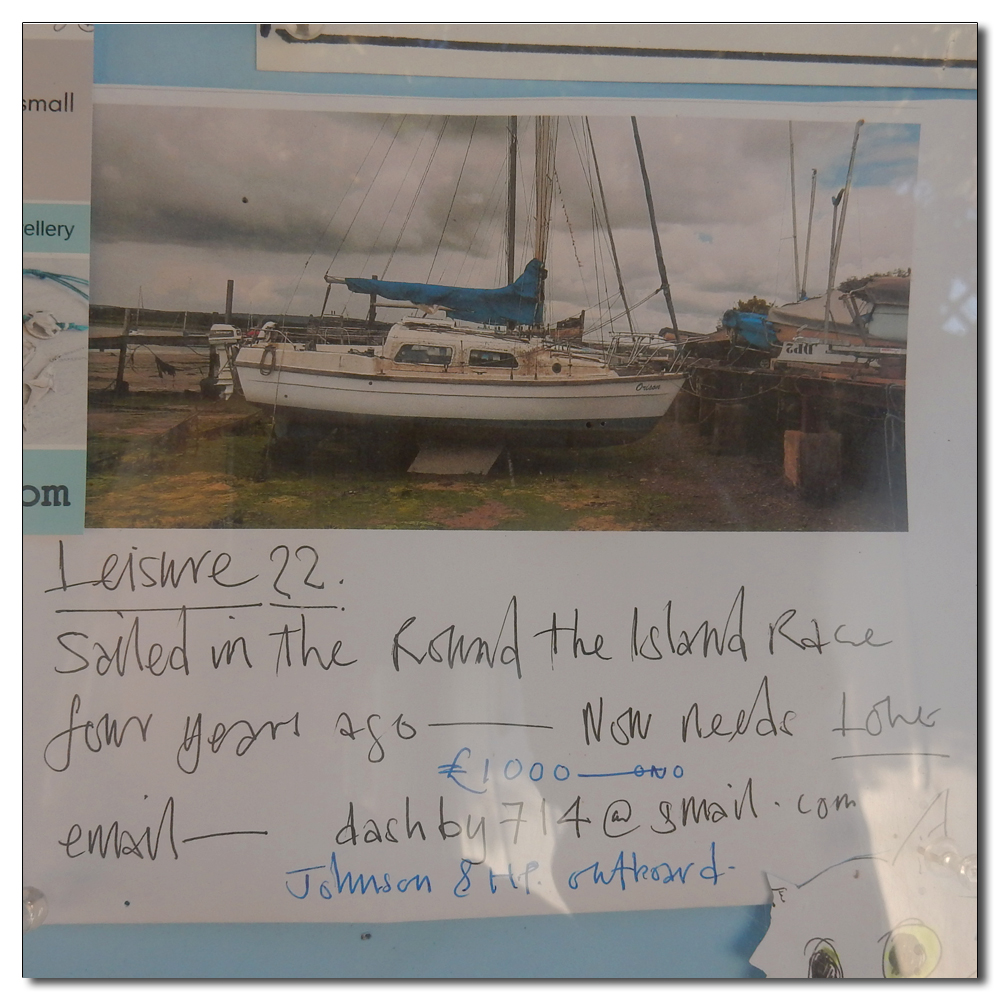 small
ellery
om
Orissa
Leisure 22.
Sailed in the Round the Island Race
four years ago — Now needs Lover
€1000 — ono
email — dashby714@gmail.com
Johnson 8 HP. outboard-